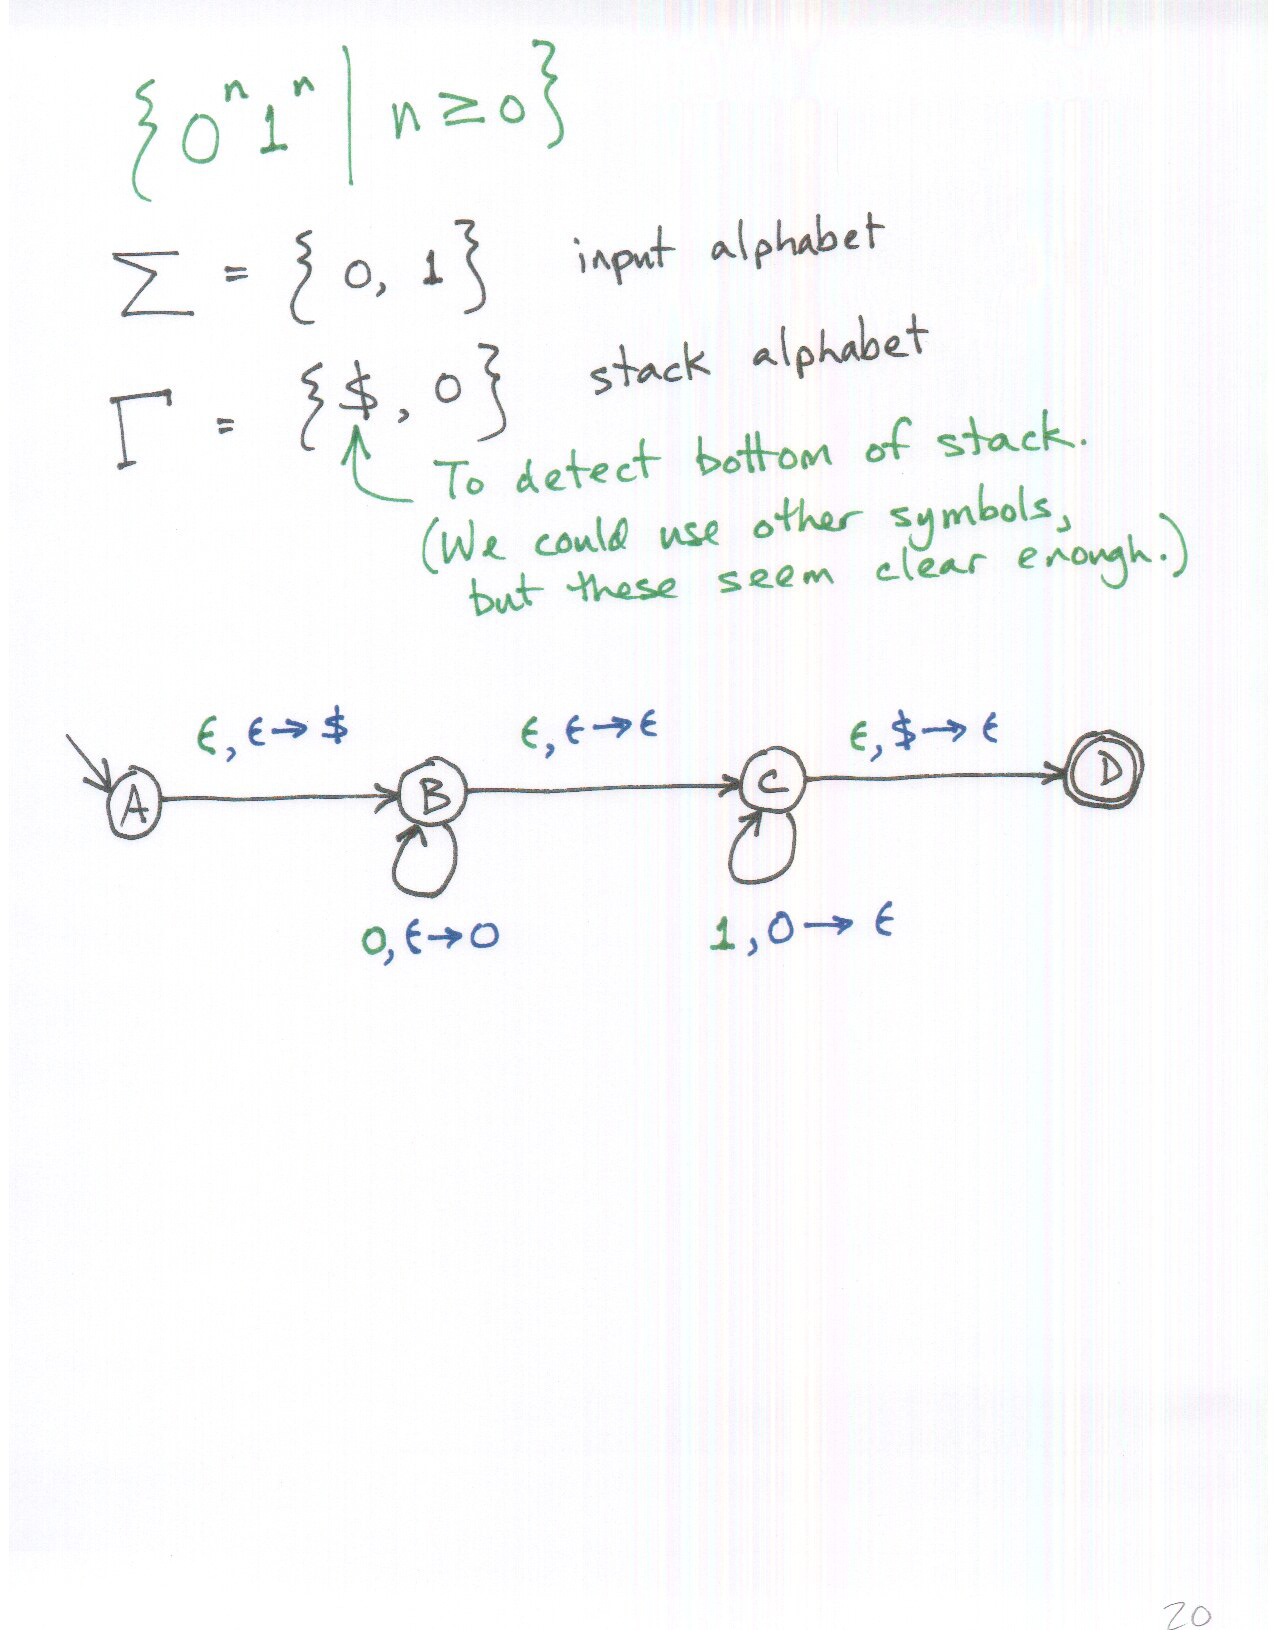 {0ⁿ1ⁿ | n ≥ 0}
Σ = {0, 1} input alphabet
Γ = {$, 0} stack alphabet
To detect bottom of stack.
(We could use other symbols,
but these seem clear enough.)
ϵ, ϵ → $ ϵ, ϵ → ϵ ϵ, $ → ϵ
A B C D
0, ϵ → 0 1, 0 → ϵ
20